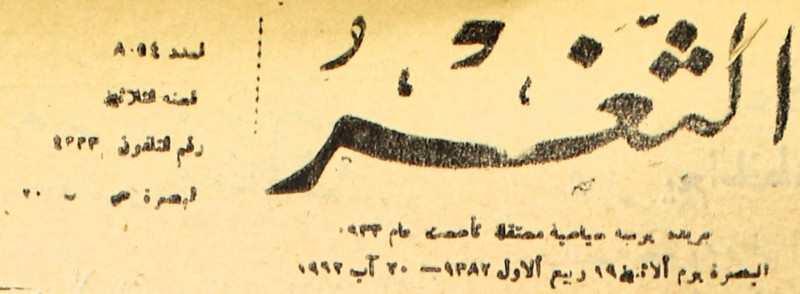 الثغر
العدد ٨٠٥٤
السنة الثلاثون
رقم التلفون
البصرة ص ـ ب ٢٠
جريدة يومية سياسية مستقلة تأسست عام ٩٣٣
البصرة يوم الاثنين ١٩ ربيع الاول ١٣٨٢ — ٢٠ آب ١٩٦٢